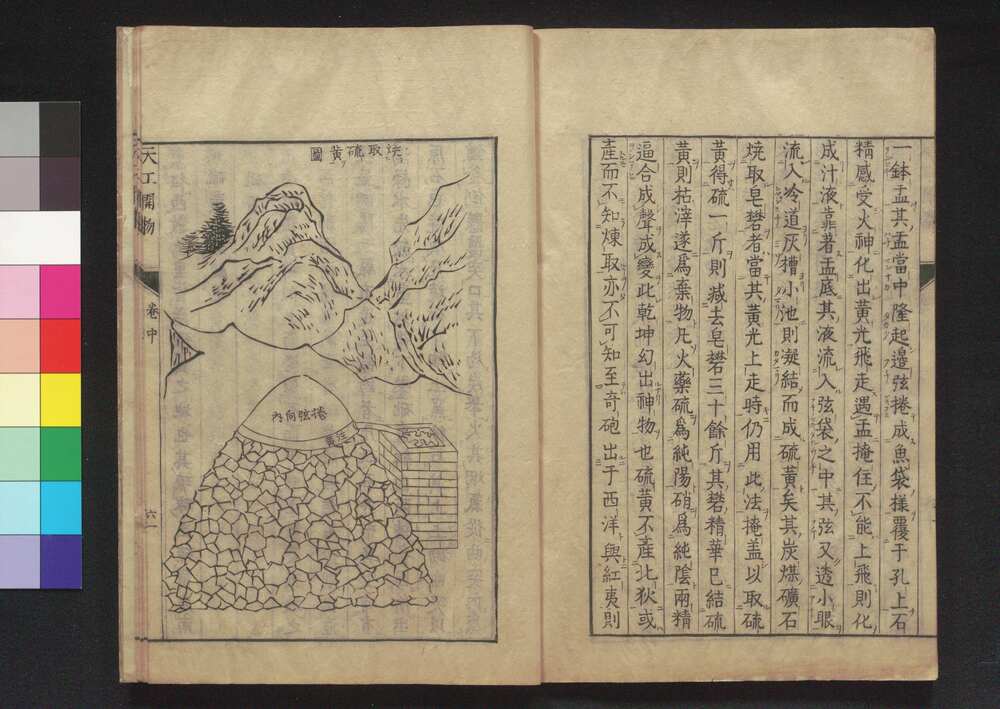 一鉢盂其盂當中隆起邉弦捲成魚袋様覆于孔上石
精感受火神化出黄光飛走遇盂掩住不能上飛則化
成汁液靠著盂底其液流入弦袋之中其弦又透小眼
流入冷道灰糟小池則凝結而成硫黄矣其炭煤礦石
燒取皂礬者當其黄光上走時仍用此法掩盖以取硫
黄得硫一斤則減去皂礬三十餘斤其礬精華已結硫
黄則枯滓遂爲棄物凡火藥硫爲純陽硝爲純陰兩精
逼合成聲成變此乾坤幻出神物也硫黄不產北狄或
產而不知煉取亦不可知至奇砲出于西洋與紅夷則
燒取硫黄圖
捲弦向内
天工開物
卷中
六一